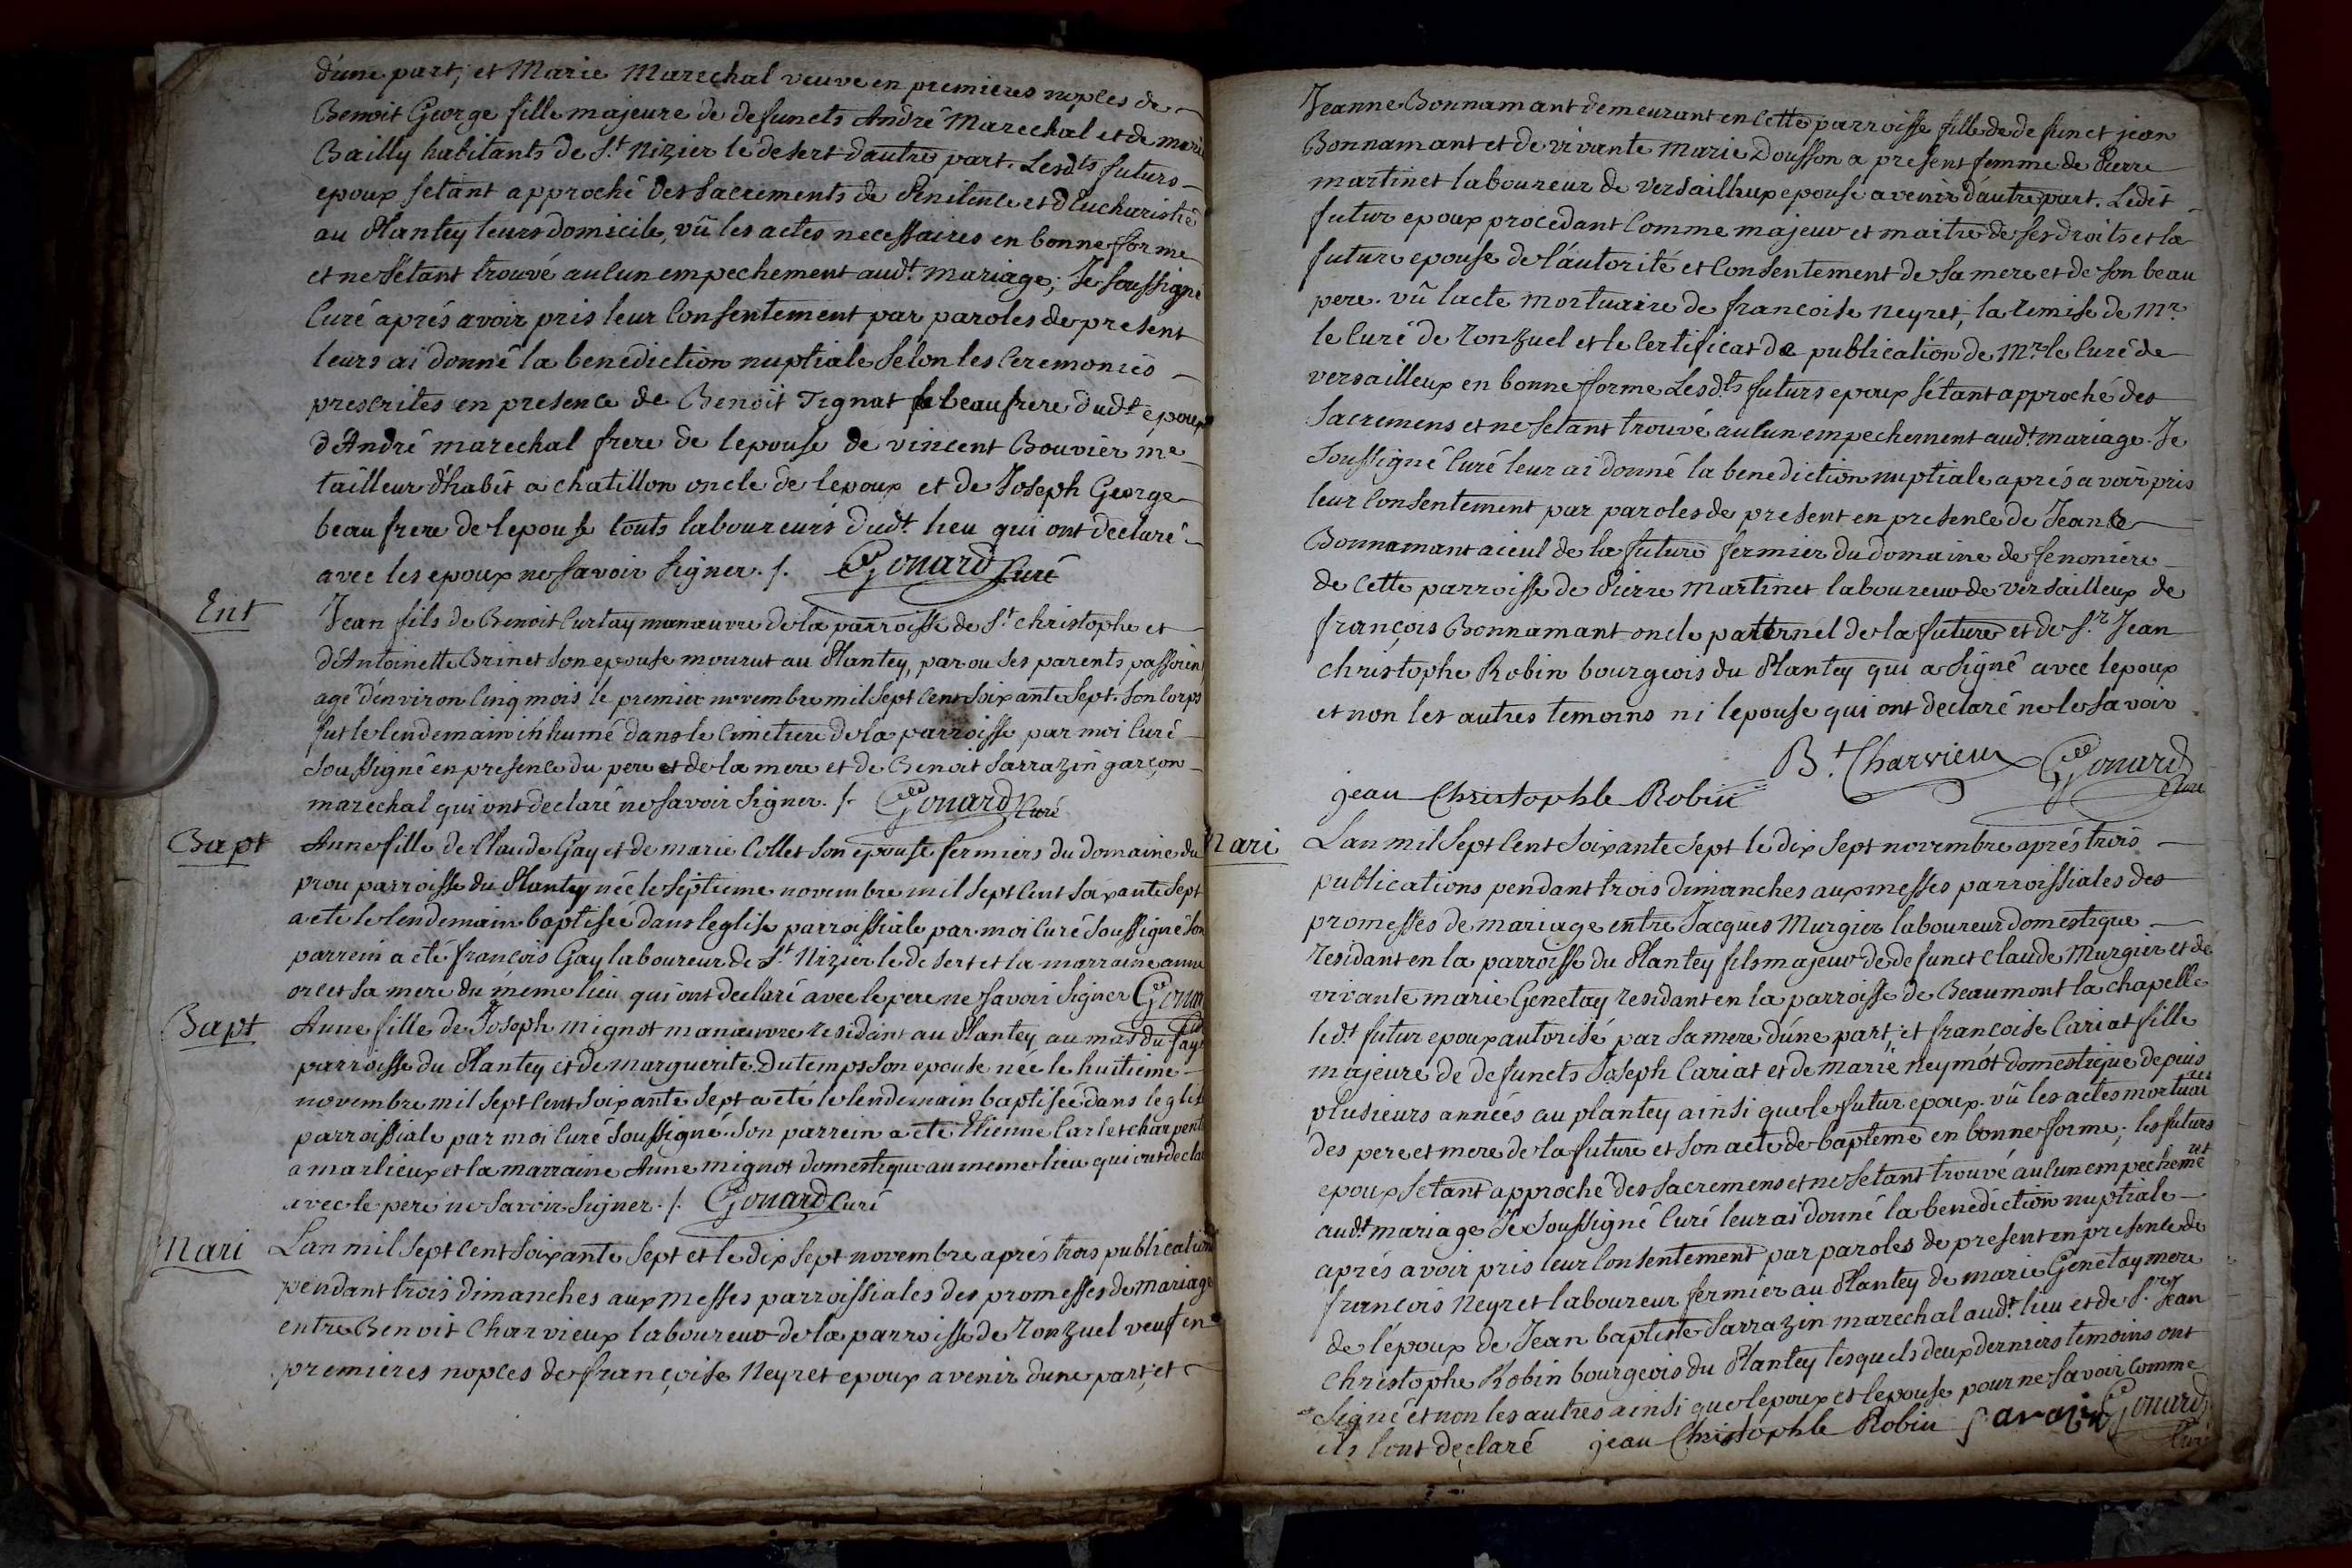 d'une part; et Marie Marechal veuve en premieres nopces de
Benoit George fille majeure de defuncts André Marechal et de marie
Bailly habitants de St. Nizier le desert dautre part. Lesdts futurs
epoux setant approché des sacrements de Penitence et d'Eucharistie
au Plantey leurs domicile, vû les actes necessaires en bonne forme
et ne s'étant trouvé aucun empechement audt. mariage; Je soussigné
Curé aprés avoir pris leur consentement par paroles de present
leurs ai donné la benediction nuptiale selon les ceremonies
prescrites en presence de Benoit Tignat beaufrere dudt epoux
d'André marechal frere de lepouse de vincent Bouvier me
tailleur d'habit a chatillon oncle de lepoux et de Joseph George
beau frere de lepouse touts laboureurs dudt. lieu qui ont declaré
avec les epoux ne savoir signer. /. Gouard Curé
Ent Jean fils de Benoit Curtay manœuvre de la parroisse de St. christophe et
d'Antoinette Brinet son epouse mourut au Plantey, par ou ses parents passoient
agé d'environ cinq mois le premier novembre mil sept cent soixante sept. son corps
fut le lendemain inhumé dans le cimetiere de la parroisse par moi curé
soussigné en presence du pere et de la mere et de Benoit Sarrazin garçon
marechal qui ont declaré ne savoir signer. /. Gouard Curé
Bapt Anne fille de Claude Gay et de marie Collet son epouse fermiers du domaine du
prou parroisse du Plantey née le septieme novembre mil sept cent soixante sept
a eté le lendemain baptisée dans leglise parroissiale par moi Curé soussigné son
parrein a eté françois Gay laboureur de St. Nizier le desert et la marraine anne
orcet sa mere du méme lieu qui ont declaré avec le pere ne savoir signer Gouard
Bapt Anne fille de Joseph mignot manœuvre residant au Plantey au mas du fay
parroisse du Plantey et de marguerite Dutemps son epouse née le huitieme
novembre mil sept cent soixante sept a eté le lendemain baptisée dans leglise
parroissiale par moi curé soussigné. son parrein a eté Etienne Carlet charpent
a marlieux et la marraine Anne mignot domestique au meme lieu qui ont decla
avec le pere ne savoir signer. /. Gouard Curé
Mari Lan mil sept cent soixante sept et le dix sept novembre aprés trois publications
pendant trois dimanches aux messes parroissiales des promesses de mariage
entre Benoit Charvieux laboureur de la parroisse de Ronzuel veuf en
premieres nopces de françoise Neyret epoux a venir dune part, et
Jeanne Bonnamant demeurant en cette parroisse fille de defunct jean
Bonnamant et de vivante Marie Dousson a present femme de Pierre
martinet laboureur de versailleux epouse a venir d'autre part. Ledit
futur epoux procedant comme majeur et maitre de ses droits et la
future epouse de l'autorité et consentement de sa mere et de son beau
pere. vû lacte mortuaire de francoise neyret, la remise de Mr.
le curé de Ronzuel et le certificat de publication de Mr. le curé de
versailleux en bonne forme Lesdts futurs epoux s'étant approché des
sacremens et ne setant trouvé aucun empechement audt. mariage. Je
soussigné curé leur ai donné la benediction nuptiale aprés avoir pris
leur consentement par paroles de present en presence de Jean
Bonnamant aieul de la future fermier du domaine de fenoniere
de cette parroisse de Pierre Martinet laboureur de versailleux de
françois Bonnamant oncle paternel de la future et de Sr. Jean
christophe Robin bourgeois du Plantey qui a signé avec lepoux
et non les autres temoins ni lepouse qui ont declaré ne le savoir
B.t Charvieux Gouard Curé
jean Christophle Robin
Mari Lan mil sept cent soixante sept le dix sept novembre aprés trois
publications pendant trois dimanches aux messes parroissiales des
promesses de mariage entre Jacques Murgier laboureur domestique
residant en la parroisse du Plantey fils majeur de defunct Claude Murgier et de
vivante marie Genetay residant en la parroisse de Beaumont la chapelle
le dt. futur epoux autorisé par sa mere d'une part, et francoise Cariat fille
majeure de defuncts Joseph Cariat et de marie neymot domestique depuis
plusieurs années au plantey ainsi que le futur epoux. vû les actes mortuaires
des pere et mere de la future et son acte de bapteme en bonne forme; les futurs
epoux setant approché des sacremens et ne setant trouvé aucun empechement
audt. mariage Je soussigné curé leur ai donné la benediction nuptiale
aprés avoir pris leur consentement par paroles de present en presence de
francois Neyret laboureur fermier au Plantey de marie Genetay mere
de l'époux de Jean baptiste Sarrazin marechal audt. lieu et de Sr. Jean
christophe Robin bourgeois du Plantey lesquels deux derniers temoins ont
signé et non les autres ainsi que lepoux et lepouse pour ne savoir comme
ils lont declaré jean Christophle Robin Sarazin Gouard Curé